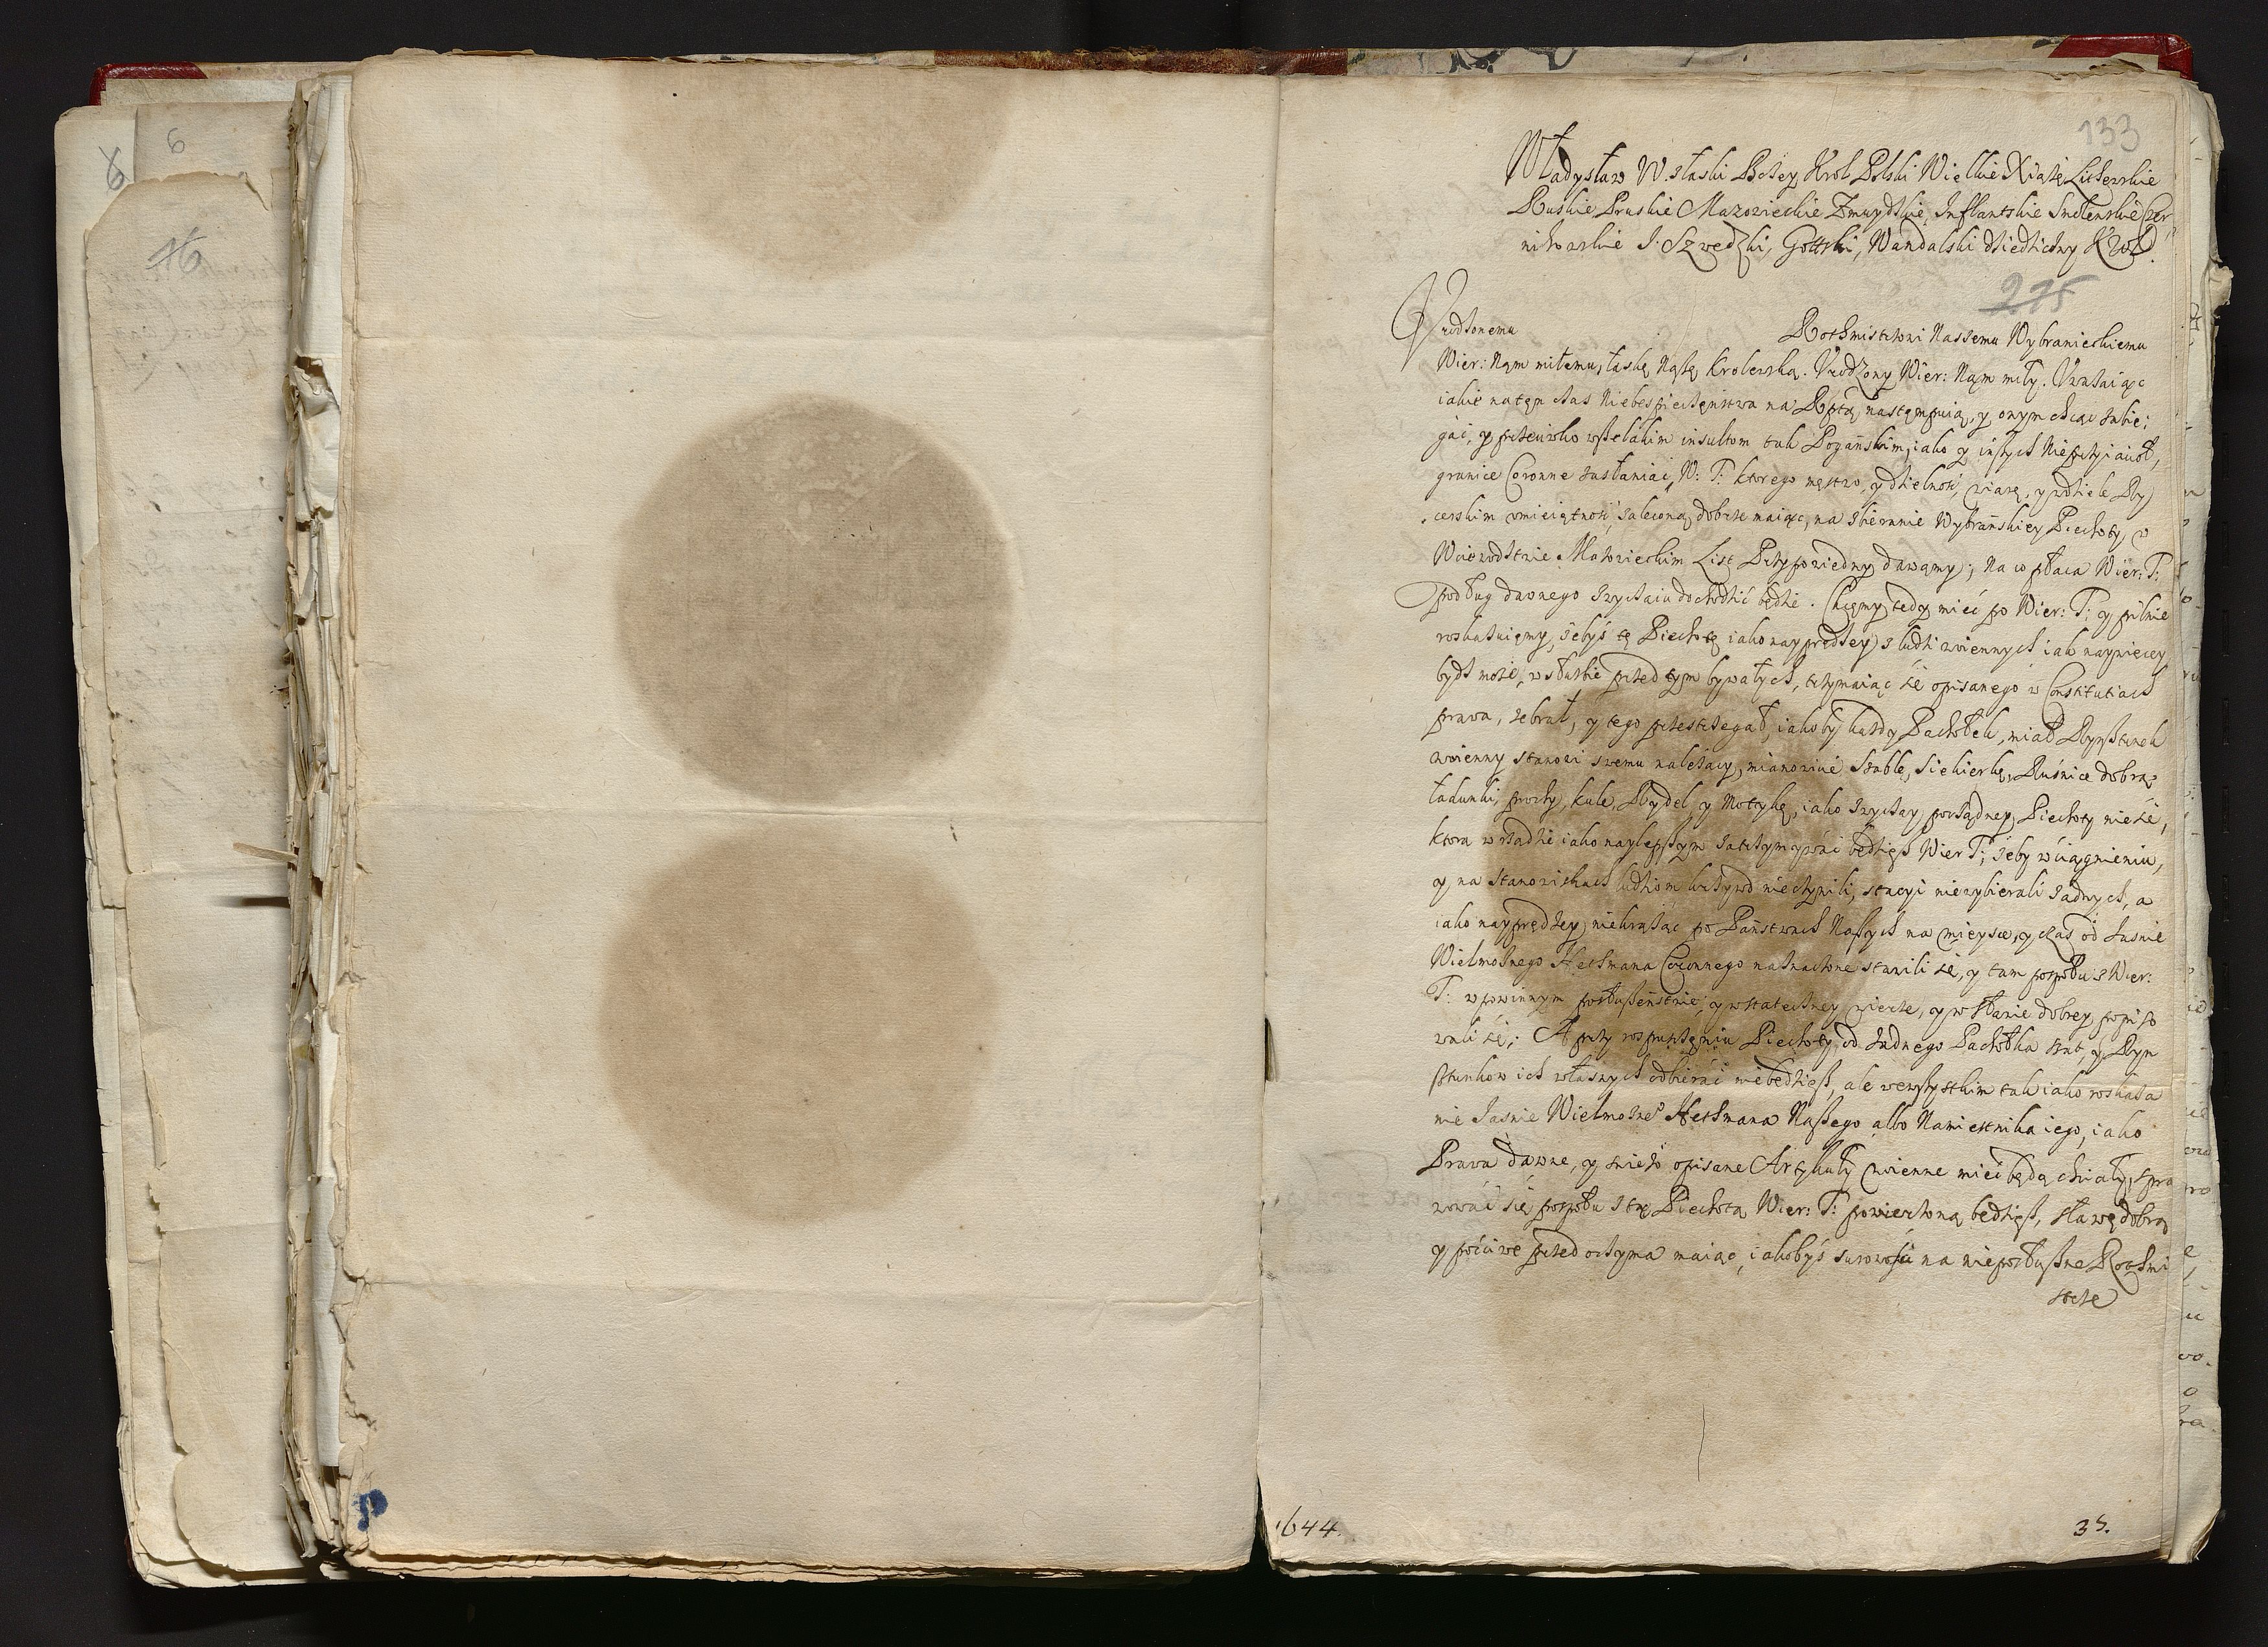 6
6
16
133
Władysław IV. z łaski Bożey Krol Polski Wielkie Xiążę Litewskie
Ruskie Pruskie Mazowieckie Żmuydzkie, Inflantskie Smolenskie Czer,
nihowskie J. Szwedzki, Gottski, Wandalski dziedziczny Krol.
275
Vrodzonemu Rothmistrzowi Naszemu Wybranieckiemu
Wier: Nąm miłemu, łaskę Naszę Krolewską. Vrodzony Wier: Nąm miły. Vważaiąc
iakie na tęn czas Niebespieczęnstwa na Rptę następuią, y onym chcąc zabie:
gać, y przeciwko wszelakim insultom tak Pogańskim, iako y inszych Nieprzyiacioł,
granice Coronne zasłaniać, W: T: ktorego męstwo, y dzielność, wiarę, y w dziele Ry
cerskim vmieiętność, zaleconą dobrze maiąc, na zbieranie Wybrańskiey Piechoty, w
Woiewodztwie Mazowieckim List Przypowiedny dawamy; Na co płaca Wier: T:
podług dawnego zwyczaiu dochodzić będzie. Chcęmy tedy mieć po Wier: T: y pilnie
roskazuięmy, żebyś tę Piechotę iako nayprędzey z ludzi woiennych iak naywięcey
bydź może, w służbie przed tym bywałych, trzymaiąc się opisanego w Constitutiach
prawa, zebrał, y tego przestrzegał, iakoby każdy Pachołek, miał Rynsztunek
woienny stanowi swemu należący, mianowicie Szable, Siekierkę, Rusnice dobrą,
ładunki, prochy, kule, Rydel y Motykę, iako zwyczay porządney Piechoty niesie,
ktorą w rządzie iako naylepszym zatrzymywać będziesz Wier T; żeby w ciągnieniu,
y na Stanowiskach ludziom krzywd nieczynili, stacyi niewybierali żadnych, a
iako nayprędzey niekrążąc po Państwach Naszych na mieysce, y czas od Jasnie
Wielmożnego Hetmana Coronnego naznaczone stawili się, y tam pospołu z Wier:
T: w powinnym posłuszeństwie, y w stateczney wierze, y w sławie dobrey popiso
wali się; A przy rospuszczęniu Piechoty, od żadnego Pachołka szat, y Ryn
sztunkow ich własnych odbierać niebędziesz, ale we wszystkim tak iako roskaza
nie Jasnie Wielmożneo Hetmana Naszego albo Namiestnika iego, iako
Prawa dawne, y swieżo opisane Artykuły woienne mieć będą chciały, spra
wować się pospołu z tą Piechotą Wier: T: powierzoną będziesz, sławę dobrą
y pocciwe przed oczyma maiąc, iakobyś surowości na nieposłuszne Rothmi
strze
1644.
35.